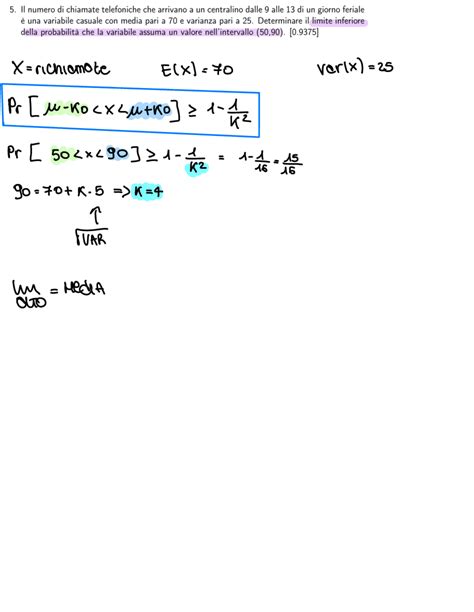 5. Il numero di chiamate telefoniche che arrivano a un centralino dalle 9 alle 13 di un giorno feriale
è una variabile casuale con media pari a 70 e varianza pari a 25. Determinare il limite inferiore
della probabilità che la variabile assuma un valore nell'intervallo (50,90). [0.9375]
X = richiamate E(X) = 70 var(x) = 25
Pr [ μ-Kσ < x < μ+Kσ ] ≥ 1 - 1/K²
Pr [ 50 < x < 90 ] ≥ 1 - 1/K² = 1 - 1/16 = 15/16
90 = 70 + K · 5 => K = 4
↑
√VAR
lim = MEDIA